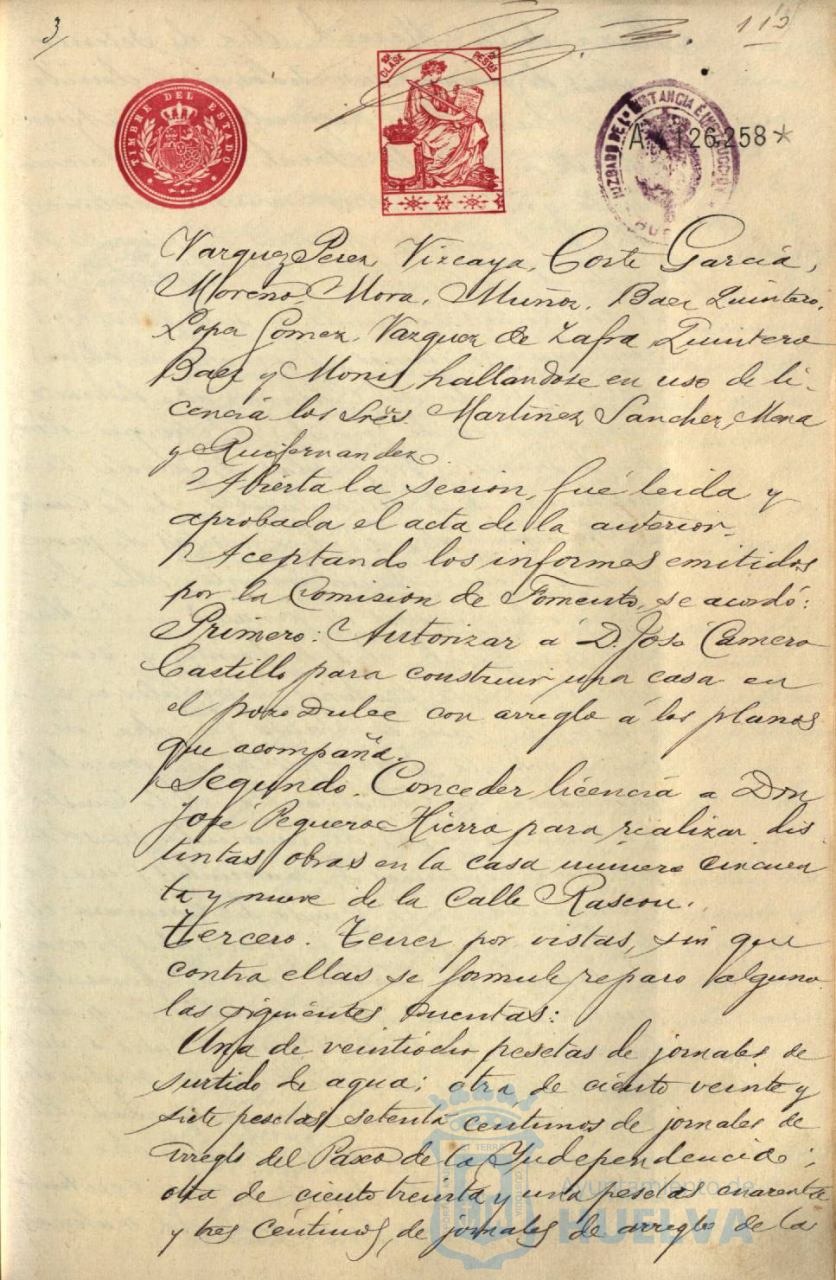 3/
112
TIMBRE DEL ESTADO
10ª CLASE
PESETAS
JUZGADO DE 1ª INSTANCIA E INSTRUCCION
A 126.258*
Vazquez Perez, Vizcaya, Corte Garcia,
Moreno, Mora, Muñoz, Baez Quintero,
Lopez Gomez, Vazquez de Zafra, Quintero
Baez y Monis, hallandose en uso de li-
cencia los Sres. Martinez Sanchez, Mena
y Ruifernandez.
Abierta la sesion, fué leida y
aprobada el acta de la anterior.
Aceptando los informes emitidos
por la Comision de Fomento, se acordó:
Primero: Autorizar á D. José Camero
Castillo para construir una casa en
el pozo Dulce con arreglo á los planos
que acompaña.
Segundo. Conceder licencia a Don
José Peguero Hierro para realizar dis
tintas obras en la casa número cincuen
ta y nueve de la calle Rascon.
Tercero. Tener por vistas, sin que
contra ellas se formule reparo alguno
las siguientes cuentas:
Una de veintiocho pesetas de jornales de
surtido de agua; otra de ciento veinte y
siete pesetas setenta centimos de jornales de
arreglo del Paseo de la Independencia;
otra de ciento treinta y una pesetas cuarenta
y tres céntimos, de jornales de arreglo de la
Ayuntamiento de
HUELVA